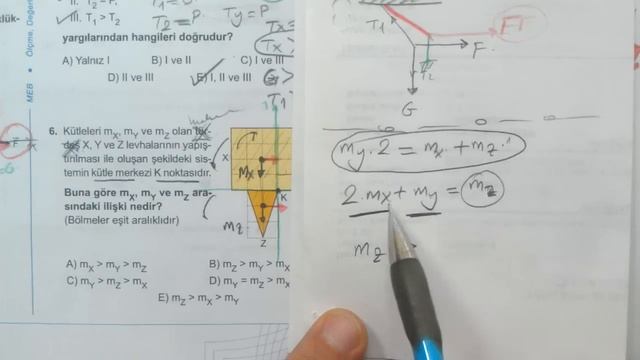 II. T₂ = P.
III. T₁ > T₂
T₂ = P.
Ty = P
Tx =
yargılarından hangileri doğrudur?
Tx >
A) Yalnız I B) I ve II C) I ve III
D) II ve III E) I, II ve III
G >
T₁
MEB • Ölçme, Değer
6. Kütleleri mX, mY ve mZ olan
X, Y ve Z levhalarının yapış-
tırılması ile oluşan şekildeki sis-
temin kütle merkezi K noktasıdır.
Buna göre mX, mY ve mZ ara-
sındaki ilişki nedir?
(Bölmeler eşit aralıklıdır)
X
mx
K
mz
Z
A) mX > mY > mZ B) mZ > mY > mX
C) mY > mZ > mX D) mY = mZ > mX
E) mZ > mX > mY
T₁
FT
F
T₂
G
my . 2 = mx + mz
2 . mx + my = mz
mz >